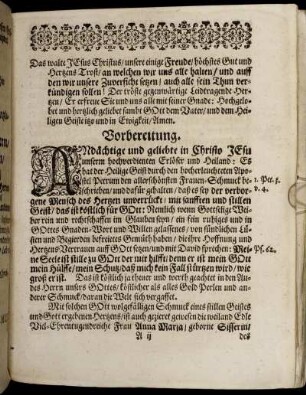 Das walte JEsus Christus/ unsere einige Freude/ höchstes Gut und
Hertzens Trost/ an welchen wir uns alle halten/ und auff
den wir unsere Zuversicht setzen/ auch alle sein Thun ver-
kündigen sollen! Der tröste gegenwärtige Leidtragende Her-
tzen/ Er erfreue Sie und uns alle mit seiner Gnade: Hochgelo-
bet und hertzlich geliebet sambt GOtt dem Vater/ und dem Hei-
ligen Geiste itzo und in Ewigkeit/ Amen.
Vorbereitung.
ANdächtige und geliebte in Christo JEsu
unserm hochverdienten Erlöser und Heiland: Es
hat der Heilige Geist durch den hocherleuchteten Apo-
stel Petrum den allerschönsten Frauen-Schmuck be-
schrieben/ und dafür gehalten/ daß es sey der verbor-
1. Pet. 3.
v. 4.
gene Mensch des Hertzen unverrückt/ mit sanfften und stillen
Geist/ das ist köstlich für GOtt: Nemlich wenn Gottselige Wei-
ber rein und rechtschaffen im Glauben seyn/ ein fein ruhiges und in
GOttes Gnaden-Wort und Willen gelassenes/ von sündlichen Lü-
sten und Begierden befreietes Gemüth haben/ die ihre Hoffnung und
Hertzens Vertrauen auff GOtt setzen/ und mit David sprechen: Mei-
ne Seele ist stille zu GOtt der mir hilfft/ denn er ist mein GOtt
Ps. 62.
mein Hülffe/ mein Schutz/ daß mich kein Fall stürtzen wird/ wie
groß er ist. Das ist köstlich ja theuer und werth geachtet in den Au-
gen des Herrn unsers GOttes/ köstlicher als alles Gold Perlen und an-
derer Schmuck/ daran die Welt sich vergaffet.
Mit solchen GOtt wolgefälligen Schmuck eines stillen Geistes
und Gott ergebenen Hertzens/ ist auch gezieret gewesen die weiland Edle
Viel-Ehrentugendreiche Frau Anna Maria/ geborne
A ij
des